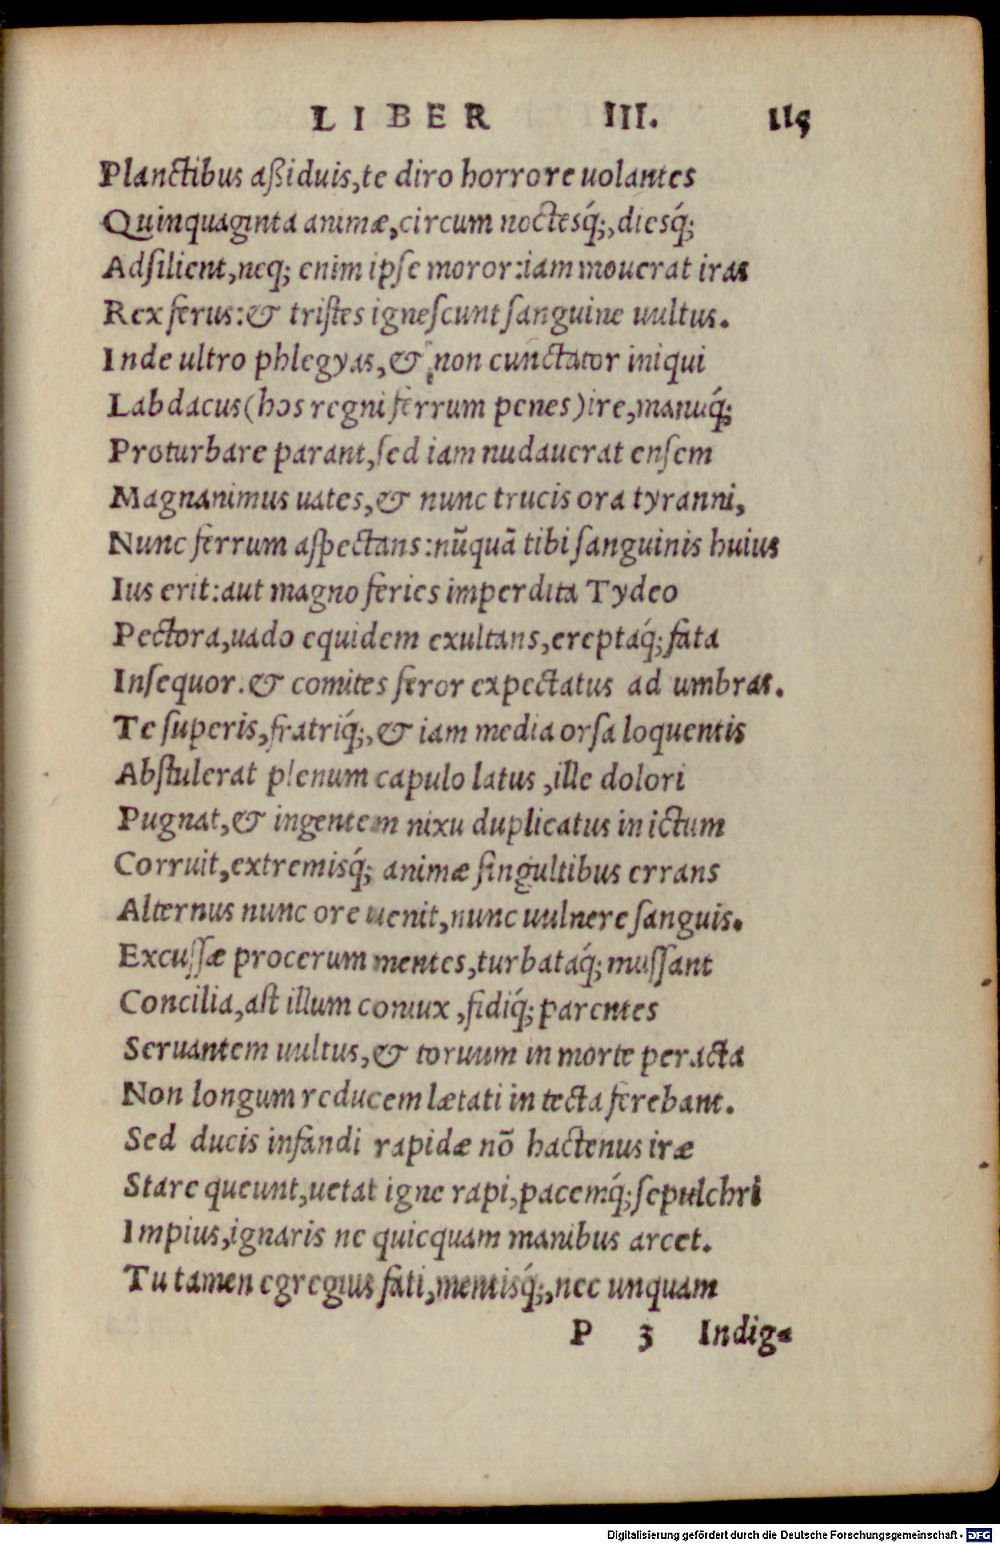 LIBER III. 115
Planctibus aßiduis, te diro horrore uolantes
Quinquaginta animæ, circum noctesq́;, diesq́;
Adſilient, neq; enim ipſe moror: iam mouerat iras
Rex ferus: & triſtes igneſcunt ſanguine uultus.
Inde ultro phlegyas, & non cunctator iniqui
Labdacus (hos regni ferrum penes) ire, manuq́;
Proturbare parant, ſed iam nudauerat enſem
Magnanimus uates, & nunc trucis ora tyranni,
Nunc ferrum aſpectans: nūquā tibi ſanguinis huius
Ius erit: aut magno feries imperdita Tydeo
Pectora, uado equidem exultans, ereptaq́; fata
Inſequor. & comites feror expectatus ad umbras.
Te ſuperis, fratriq́;, & iam media orſa loquentis
Abſtulerat plenum capulo latus, ille dolori
Pugnat, & ingentem nixu duplicatus in ictum
Corruit, extremisq́; animæ ſingultibus errans
Alternus nunc ore uenit, nunc uulnere ſanguis.
Excuſſæ procerum mentes, turbataq́; muſſant
Concilia, aſt illum coniux, fidiq́; parentes
Seruantem uultus, & toruum in morte peracta
Non longum reducem lætati in tecta ferebant.
Sed ducis infandi rapidæ nō hactenus iræ
Stare queunt, uetat igne rapi, pacemq́; ſepulchri
Impius, ignaris ne quicquam manibus arcet.
Tu tamen egregius fati, mentisq́;, nec unquam
P 3 Indig⸗
Digitalisierung gefördert durch die Deutsche Forschungsgemeinschaft - DFG